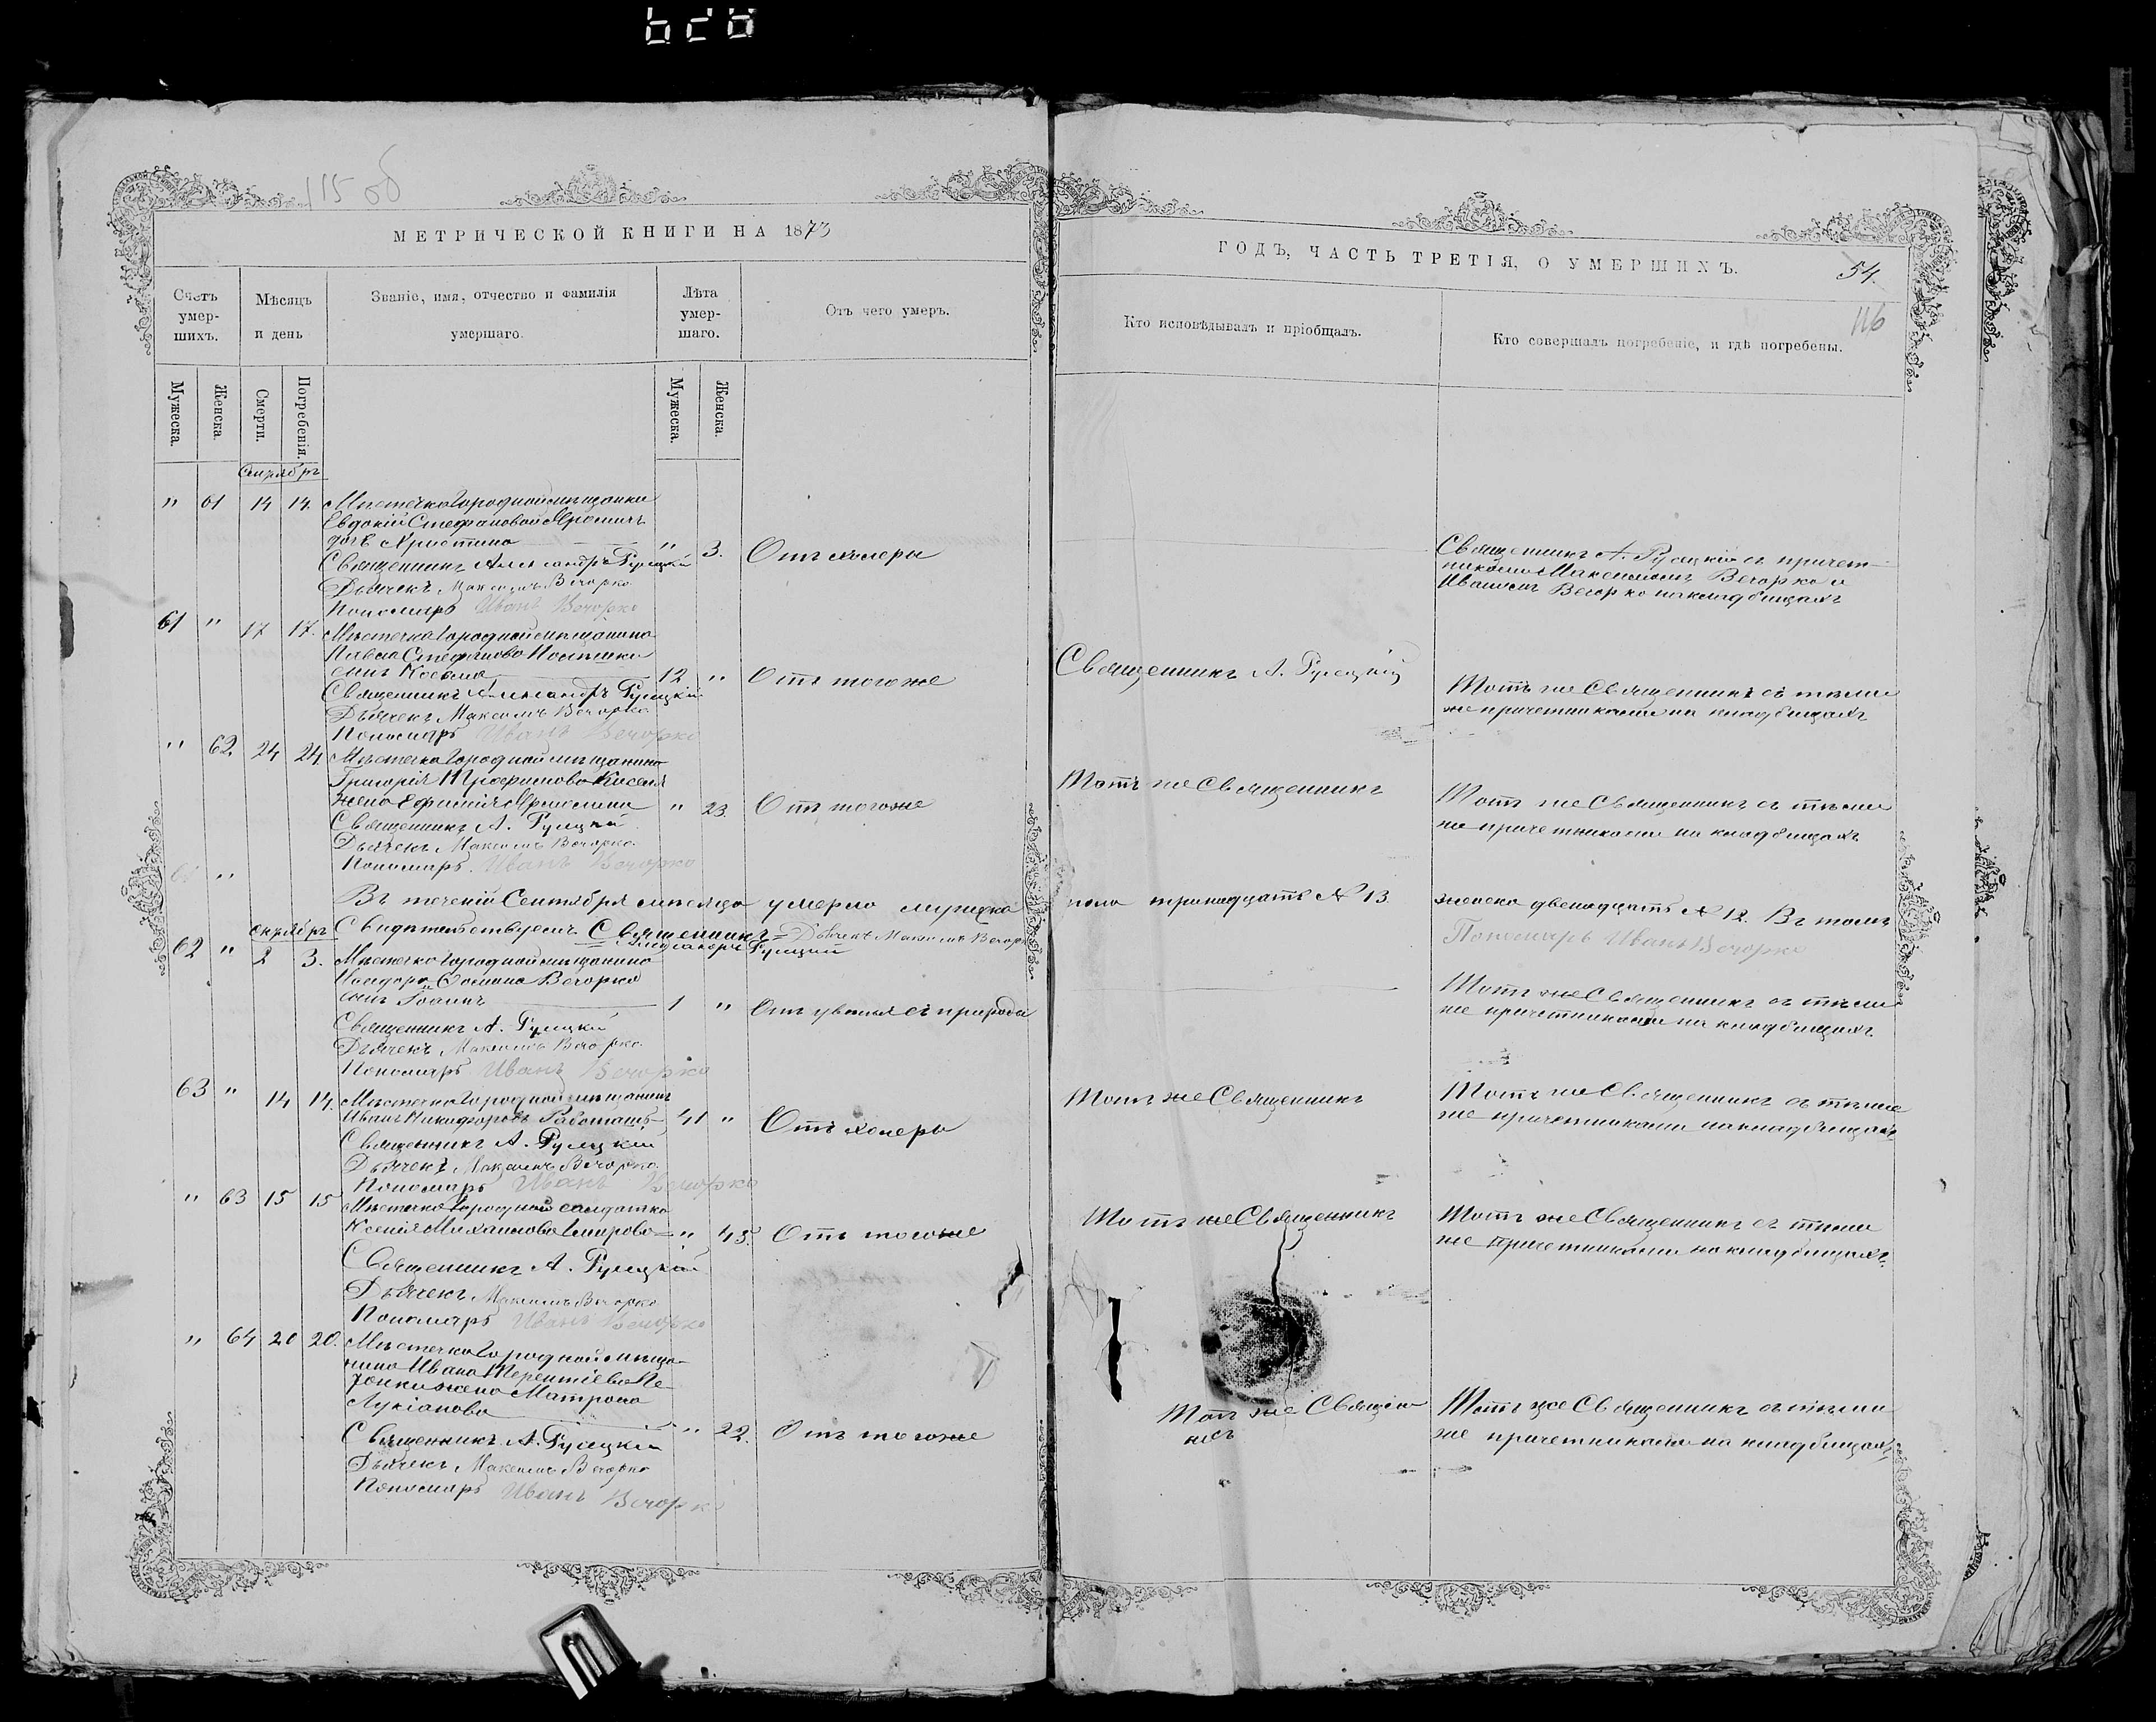 115 об
МЕТРИЧЕСКОЙ КНИГИ НА 1873
Счетъ умер-шихъ.
Мѣсяцъ и день
Званіе, имя, отчество и фамилія умершаго.
Лѣта умер-шаго.
Отъ чего умеръ.
Мужеска.
Женска.
Смерти.
Погребенія.
Мужеска.
Женска.
" 61 14 14. Мѣстечка Городной мѣщанки
Евдокіи Стефановой
дочь Христина " 3. Отъ холеры
Священникъ Александръ Рулецкій
Дьячекъ Максимъ Вечорко
Пономарь Иванъ Вечорко
61 " 17 17. Мѣстечка Городной мѣщанина
Павла Стефанова
сынъ Косьма 12 " Отъ тогоже
Священникъ Александръ Рулецкій
Дьячекъ Максимъ Вечорко
Пономарь Иванъ Вечорко
" 62. 24 24. Мѣстечка Городной мѣщанина
Григорія Трофимова
жена Ефимія " 23. Отъ тогоже
Священникъ А. Рулецкій
Дьячекъ Максимъ Вечорко
Пономарь Иванъ Вечорко
Въ теченіи Сентября мѣсяца умерло мужеска
Свидѣтельствуемъ Священникъ Александръ Рулецкій Дьячекъ Максимъ Вечорко
62 " 2 3. Мѣстечка Городной мѣщанина
Вечорко
сынъ Іоаннъ 1 " Отъ
Священникъ А. Рулецкій
Дьячекъ Максимъ Вечорко
Пономарь Иванъ Вечорко
63 " 14 14. Мѣстечка Городной мѣщанинъ
Иванъ Никифоровъ 41 " Отъ холеры
Священникъ А. Рулецкій
Дьячекъ Максимъ Вечорко
Пономарь Иванъ Вечорко
" 63 15 15 Мѣстечка Городной солдатка
Ксенія Михайлова " 45. Отъ тогоже
Священникъ А. Рулецкій
Дьячекъ Максимъ Вечорко
Пономарь Иванъ Вечорко
" 64 20 20. Мѣстечка Городной мѣща-
нина Ивана Терентіева
жена Матрона
Лукіанова " 22. Отъ тогоже
Священникъ А. Рулецкій
Дьячекъ Максимъ Вечорко
Пономарь Иванъ Вечорко
ГОДЪ, ЧАСТЬ ТРЕТІЯ, О УМЕРШИХЪ.
54.
116
Кто исповѣдывалъ и пріобщалъ.
Кто совершалъ погребеніе, и гдѣ погребены.
Священникъ А. Рулецкій съ причет-
никами Максимомъ Вечорко и
Иваномъ Вечорко на кладбищахъ
Священникъ А. Рулецкій
Тотъ же Священникъ съ тѣми
же причетниками на кладбищахъ
Тотъ же Священникъ
Тотъ же Священникъ съ тѣми
же причетниками на кладбищахъ
пола тринадцать № 13. женска двенадцать № 12. Въ томъ
Пономарь Иванъ Вечорко
Тотъ же Священникъ съ тѣми
же причетниками на кладбищахъ
Тотъ же Священникъ
Тотъ же Священникъ съ тѣми
же причетниками на кладбищахъ
Тотъ же Священникъ
Тотъ же Священникъ съ тѣми
же причетниками на кладбищахъ
Тотъ же Священ-
никъ
Тотъ же Священникъ съ тѣми
же причетниками на кладбищахъ